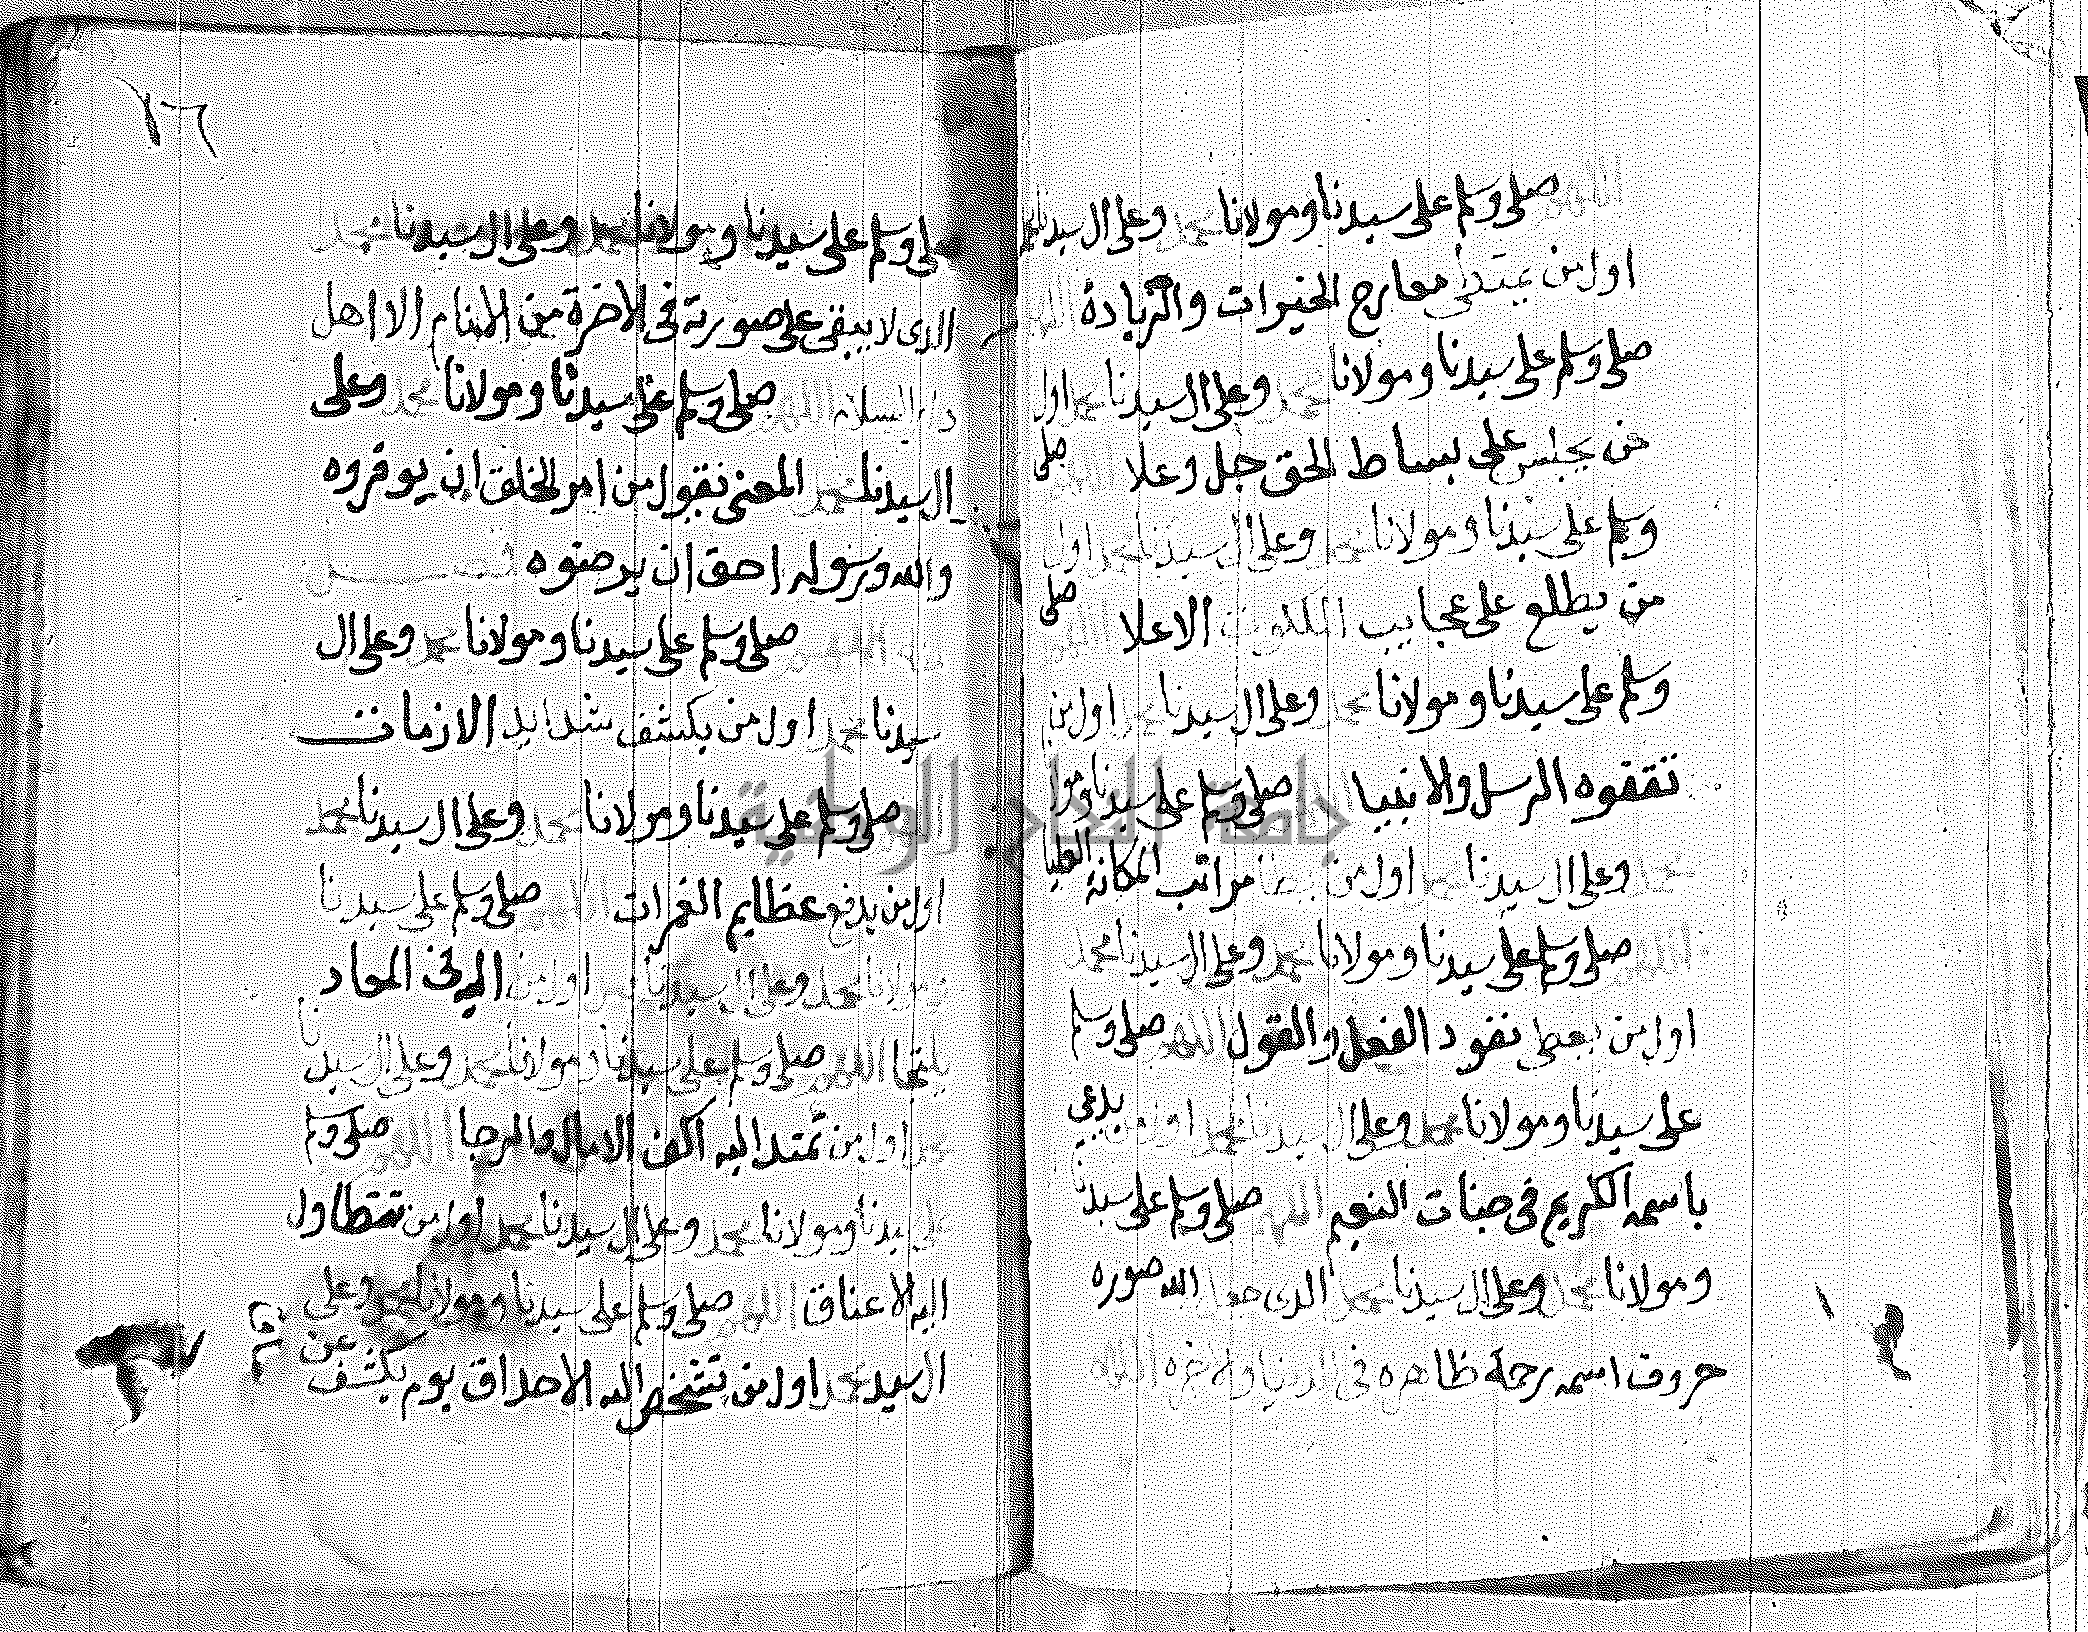 اللهم صلى وسلم على سيدنا ومولانا محمد وعلى ال سيدنا محمد
اول من يمتطى معارج الخيرات والزيادة اللهم
صلى وسلم على سيدنا ومولانا محمد وعلى ال سيدنا محمد اول
من يجلس على بساط الحق جل وعلا صلى
وسلم على سيدنا ومولانا محمد وعلى ال سيدنا محمد اول
من يطلع على عجايب الملكوت الاعلا صلى
وسلم على سيدنا ومولانا محمد وعلى ال سيدنا محمد اول من
تقفوه الرسل والانبيا صلى وسلم على سيدنا ومولا
محمد وعلى ال سيدنا محمد اول من مراتب المكانة العليا
اللهم صلى وسلم على سيدنا ومولانا محمد وعلى ال سيدنا محمد
اول من يعطى نفود الفعل والقول اللهم صلى وسلم
على سيدنا ومولانا محمد وعلى ال سيدنا محمد اول من يدعى
باسمه الكريم فى جنات النعيم اللهم صلى وسلم على سيدنا
ومولانا محمد وعلى ال سيدنا محمد الدى جعل الله صوره
حروف اسمه رحمة ظاهره فى الدنيا والاخره اللهم
١٦
صلى وسلم على سيدنا ومولانا محمد وعلى ال سيدنا محمد
الدى لا يبقى على صورته فى الاخرة من الانام الا اهل
دار السلام اللهم صلى وسلم على سيدنا ومولانا محمد وعلى
ال سيدنا محمد المعنى نقول من امر الخلق ان يوقروه
والله ورسوله احق ان يرضوه
اللهم صلى وسلم على سيدنا ومولانا محمد وعلى ال
سيدنا محمد اول من يكشف شدايد الازمات
اللهم صلى وسلم على سيدنا ومولانا محمد وعلى ال سيدنا محمد
اول من يدفع عظايم الغمرات اللهم صلى وسلم على سيدنا
ومولانا محمد وعلى ال سيدنا محمد اول من اليه فى المعاد
يلتجا اللهم صلى وسلم على سيدنا ومولانا محمد وعلى ال سيدنا
محمد اول من تمتد اليه اكف الامال والرجا اللهم صلى وسلم
على سيدنا ومولانا محمد وعلى ال سيدنا محمد اول من تتطاول
اليه الاعناق اللهم صلى وسلم على سيدنا ومولانا محمد وعلى
ال سيدنا محمد اول من تشخص اليه الاحداق يوم يكشف عن
جامعة النجاح الوطنية